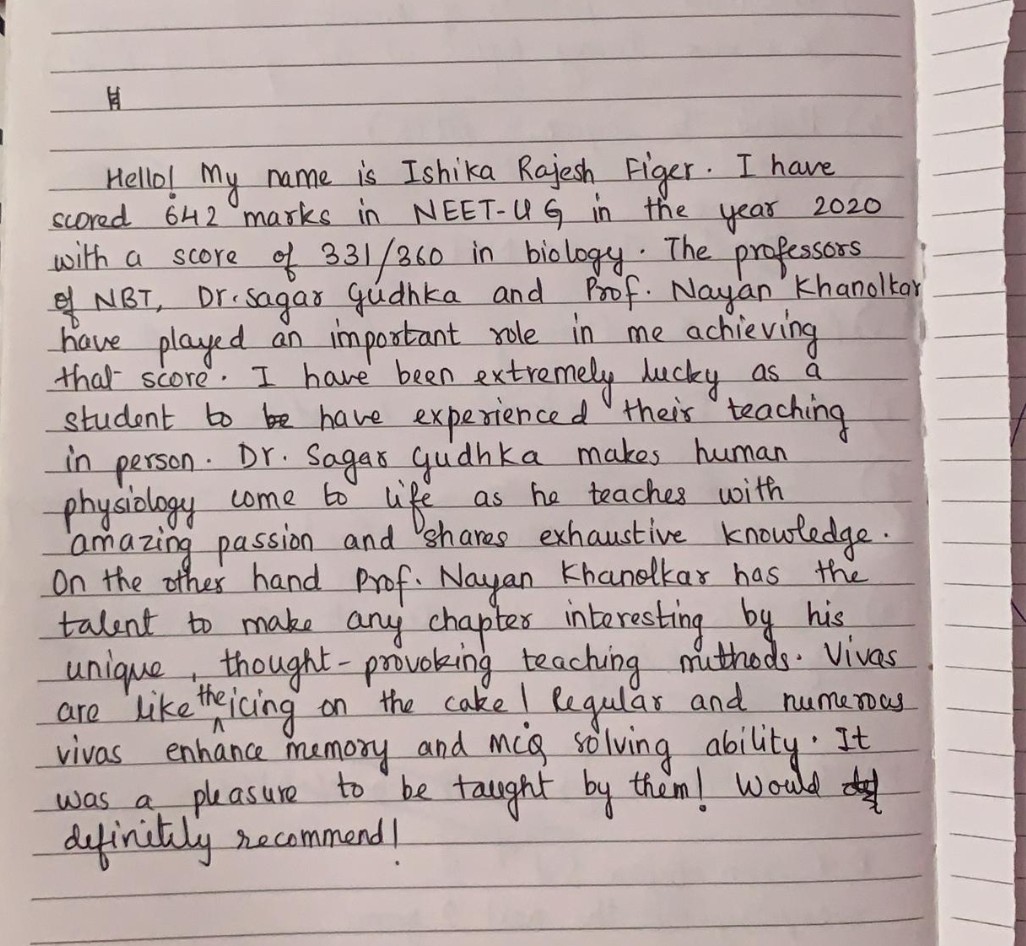 Hello! My name is Ishika Rajesh Figer. I have
scored 642 marks in NEET-UG in the year 2020
with a score of 331/360 in biology. The professors
of NBT, Dr. Sagar Gudhka and Prof. Nayan Khanolkar
have played an important role in me achieving
that score. I have been extremely lucky as a
student to be have experienced their teaching
in person. Dr. Sagar Gudhka makes human
physiology come to life as he teaches with
amazing passion and shares exhaustive knowledge.
On the other hand Prof. Nayan Khanolkar has the
talent to make any chapter interesting by his
unique, thought-provoking teaching methods. Vivas
are like the icing on the cake! Regular and numerous
vivas enhance memory and MCQ solving ability. It
was a pleasure to be taught by them! Would
definitely recommend!